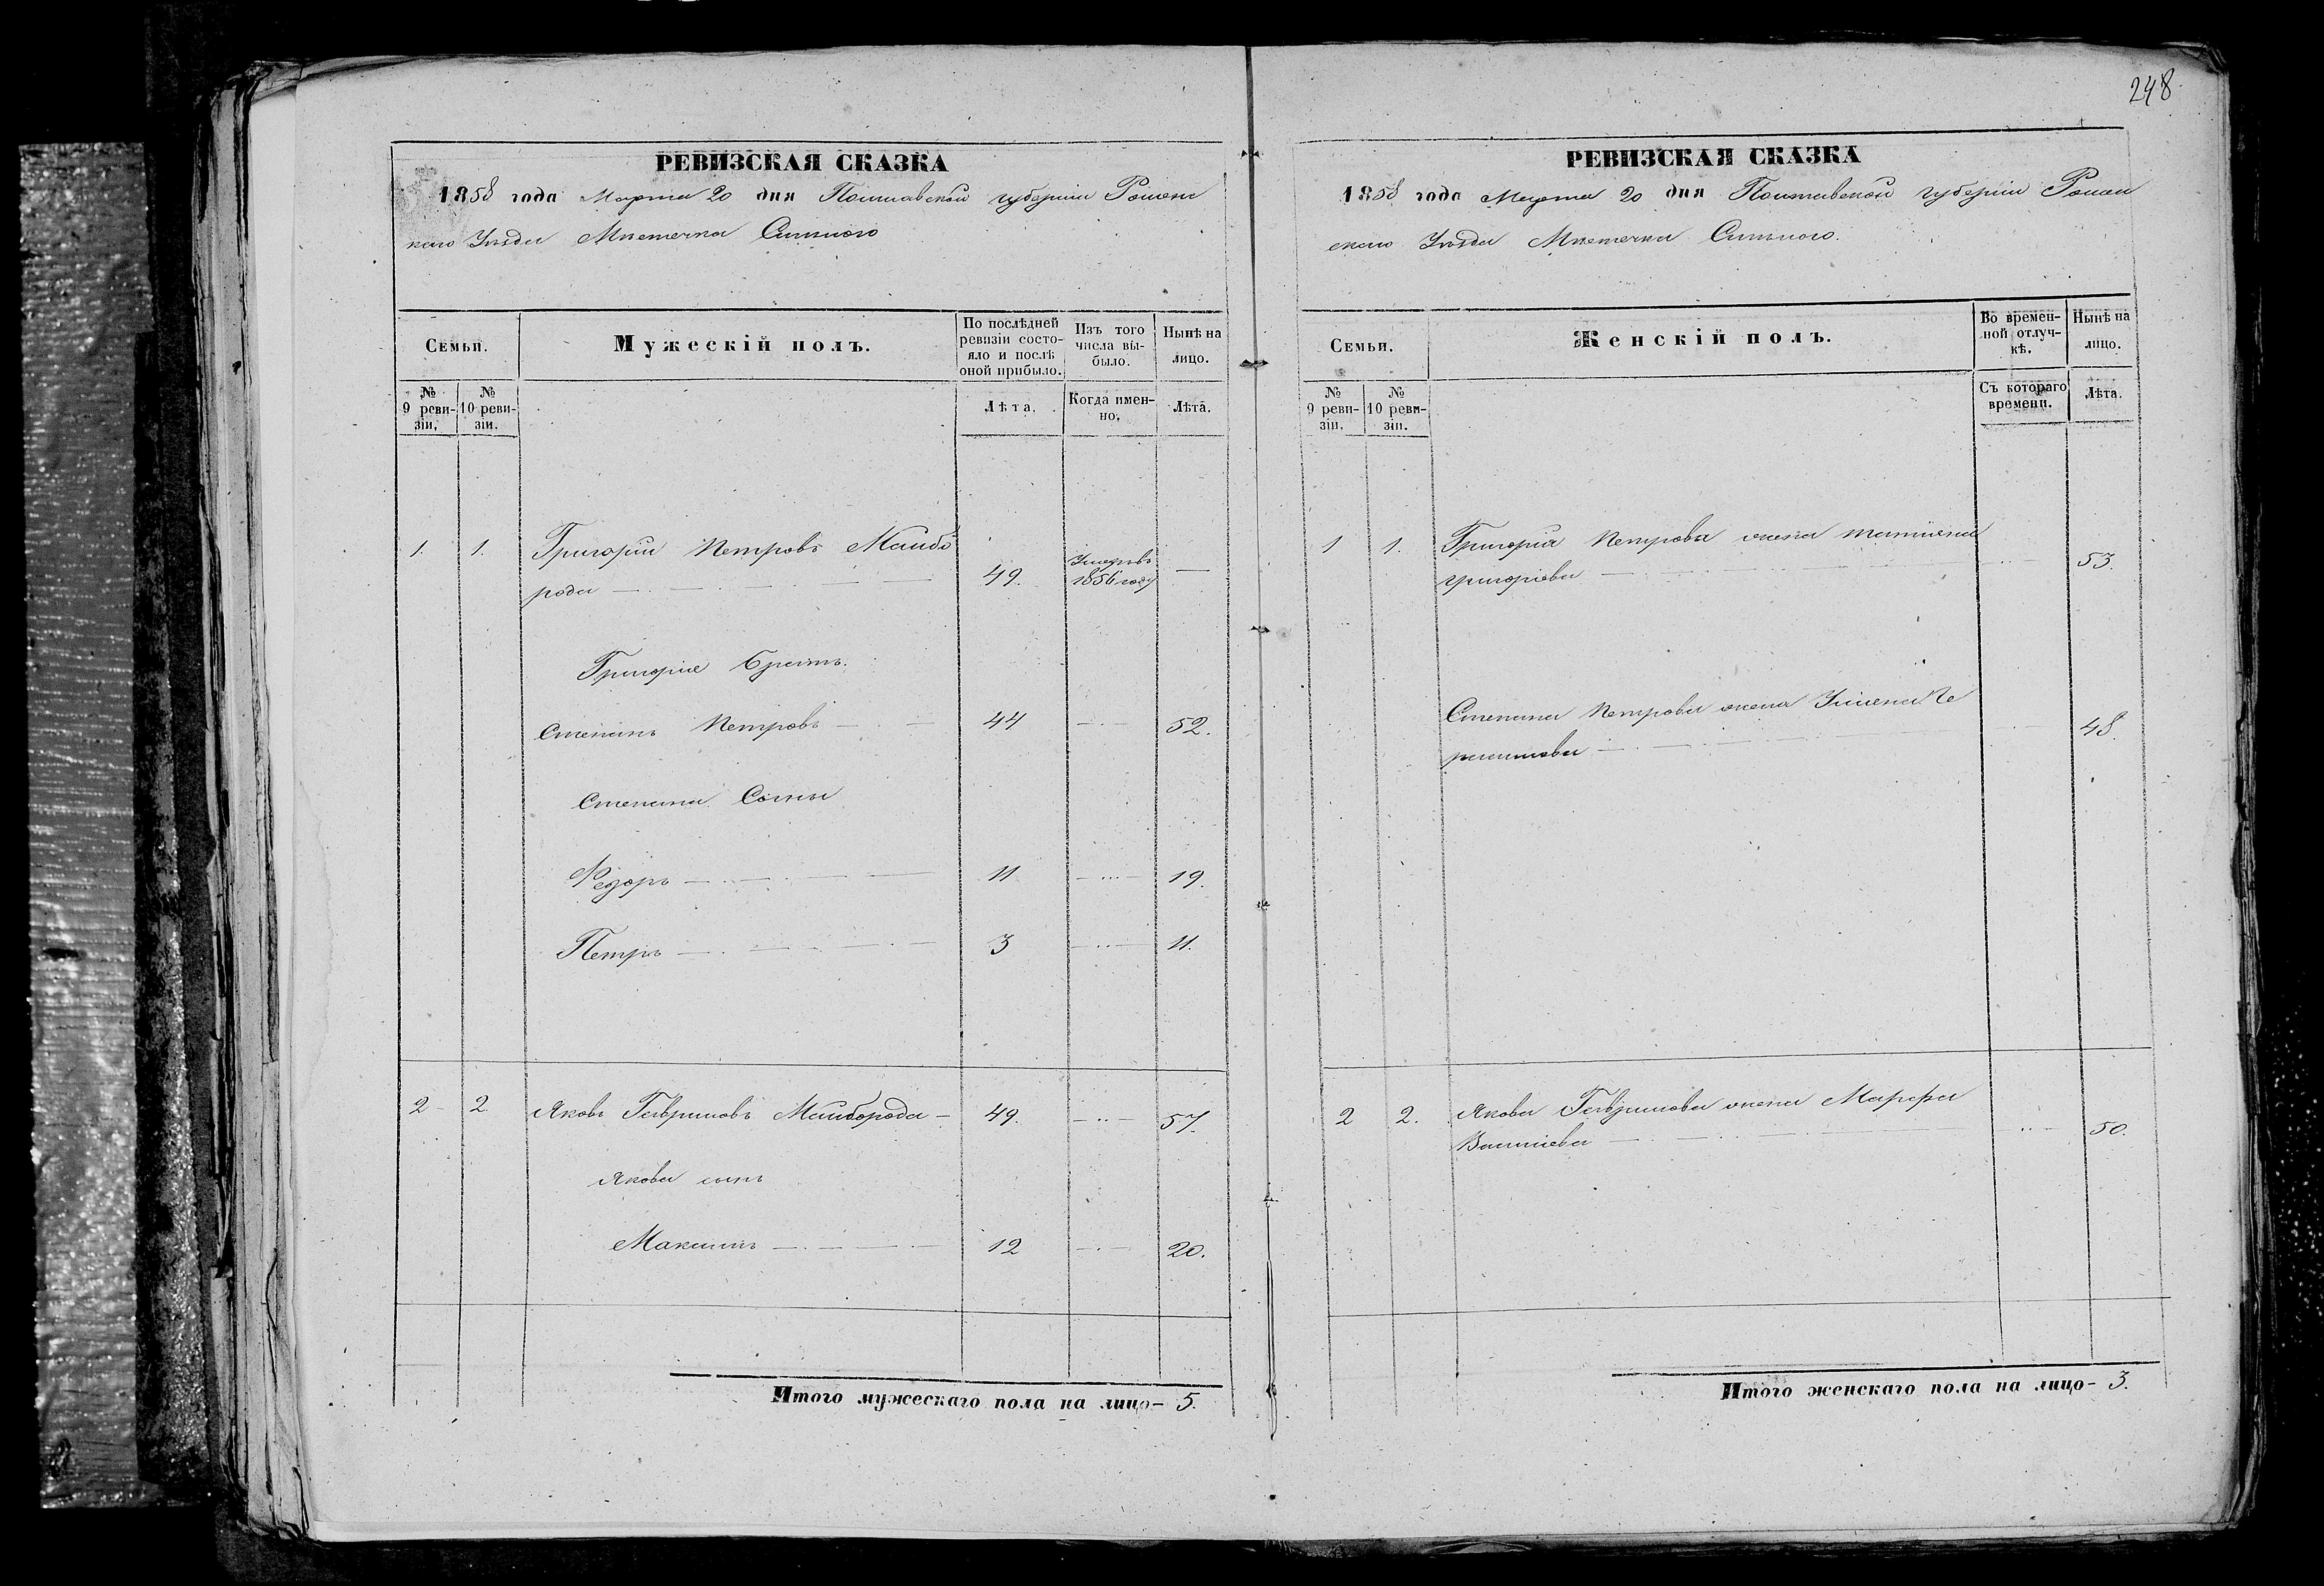 248
РЕВИЗСКАЯ СКАЗКА
1858 года Марта 20 дня Полтавской губерніи Роменс
каго Уѣзда Мѣстечка Смѣлого
Семьи.
Мужескій полъ.
По послѣдней ревизіи состояло и послѣ оной прибыло.
Изъ того числа выбыло.
Нынѣ на лицо.
№ 9 ревизіи.
№ 10 ревизіи.
Лѣта.
Когда именно.
Лѣта.
1. 1. Григорій Петровъ Майбо
рода 49. Умеръ въ 1856 году —
Григорія братъ.
Степанъ Петровъ 44 52.
Степана Сыны
Федоръ 11 19.
Петръ 3 11.
2 2 Яковъ Гавриловъ Майборода 49. 57.
Якова сынъ
Максимъ 12 20.
Итого мужескаго пола на лицо 5.
РЕВИЗСКАЯ СКАЗКА
1858 года Марта 20 дня Полтавской губерніи Ромен
скаго Уѣзда Мѣстечка Смѣлого.
Семьи.
Женскій полъ.
Во временной отлучкѣ.
Нынѣ на лицо.
№ 9 ревизіи.
№ 10 ревизіи.
Съ котораго времени.
Лѣта.
1 1. Григорія Петрова жена Татіяна
григоріева 53.
Степана Петрова жена Уліяна Ге
расимова 48.
2 2. Якова Гаврилова жена Марфа
Василіева 50.
Итого женскаго пола на лицо 3.